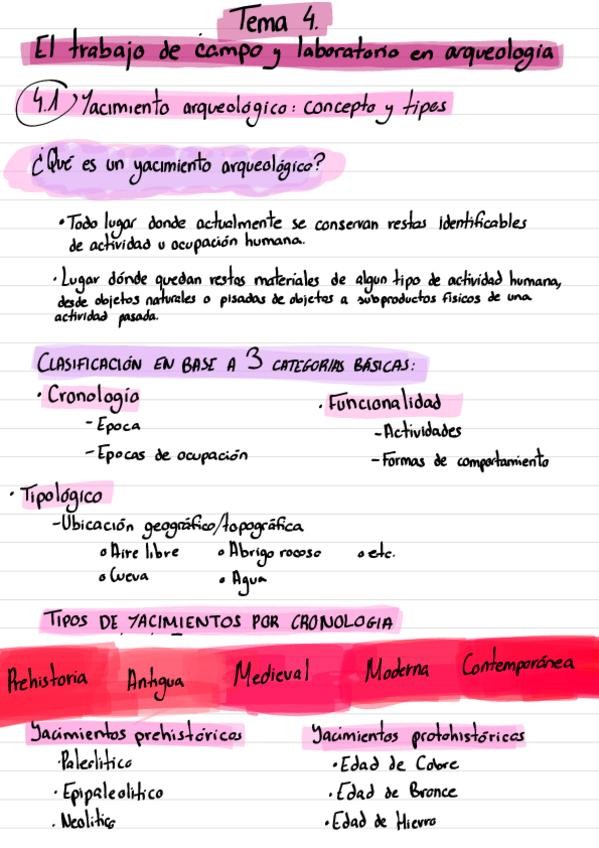 Tema 4.
El trabajo de campo y laboratorio en arqueología
4.1 Yacimiento arqueológico: concepto y tipos
¿Qué es un yacimiento arqueológico?
• Todo lugar donde actualmente se conservan restas identificables
de actividad u ocupación humana.
• Lugar dónde quedan restos materiales de algun tipo de actividad humana,
desde objetos naturales o pisadas de objetos a subproductos físicos de una
actividad pasada.
CLASIFICACIÓN EN BASE A 3 CATEGORIAS BÁSICAS:
• Cronología
- Epoca
- Epocas de ocupación
• Funcionalidad
- Actividades
- Formas de comportamiento
• Tipológico
- Ubicación geográfico/topográfica
o Aire libre o Abrigo rocoso o etc.
o Cueva • Agua
TIPOS DE YACIMIENTOS POR CRONOLOGIA
Prehistoria Antigua Medieval Moderna Contemporánea
Yacimientos prehistóricos
• Paleolítico
• Epipaleolítico
• Neolítico
Yacimientos protohistóricos
• Edad de Cobre
• Edad de Bronce
• Edad de Hierro